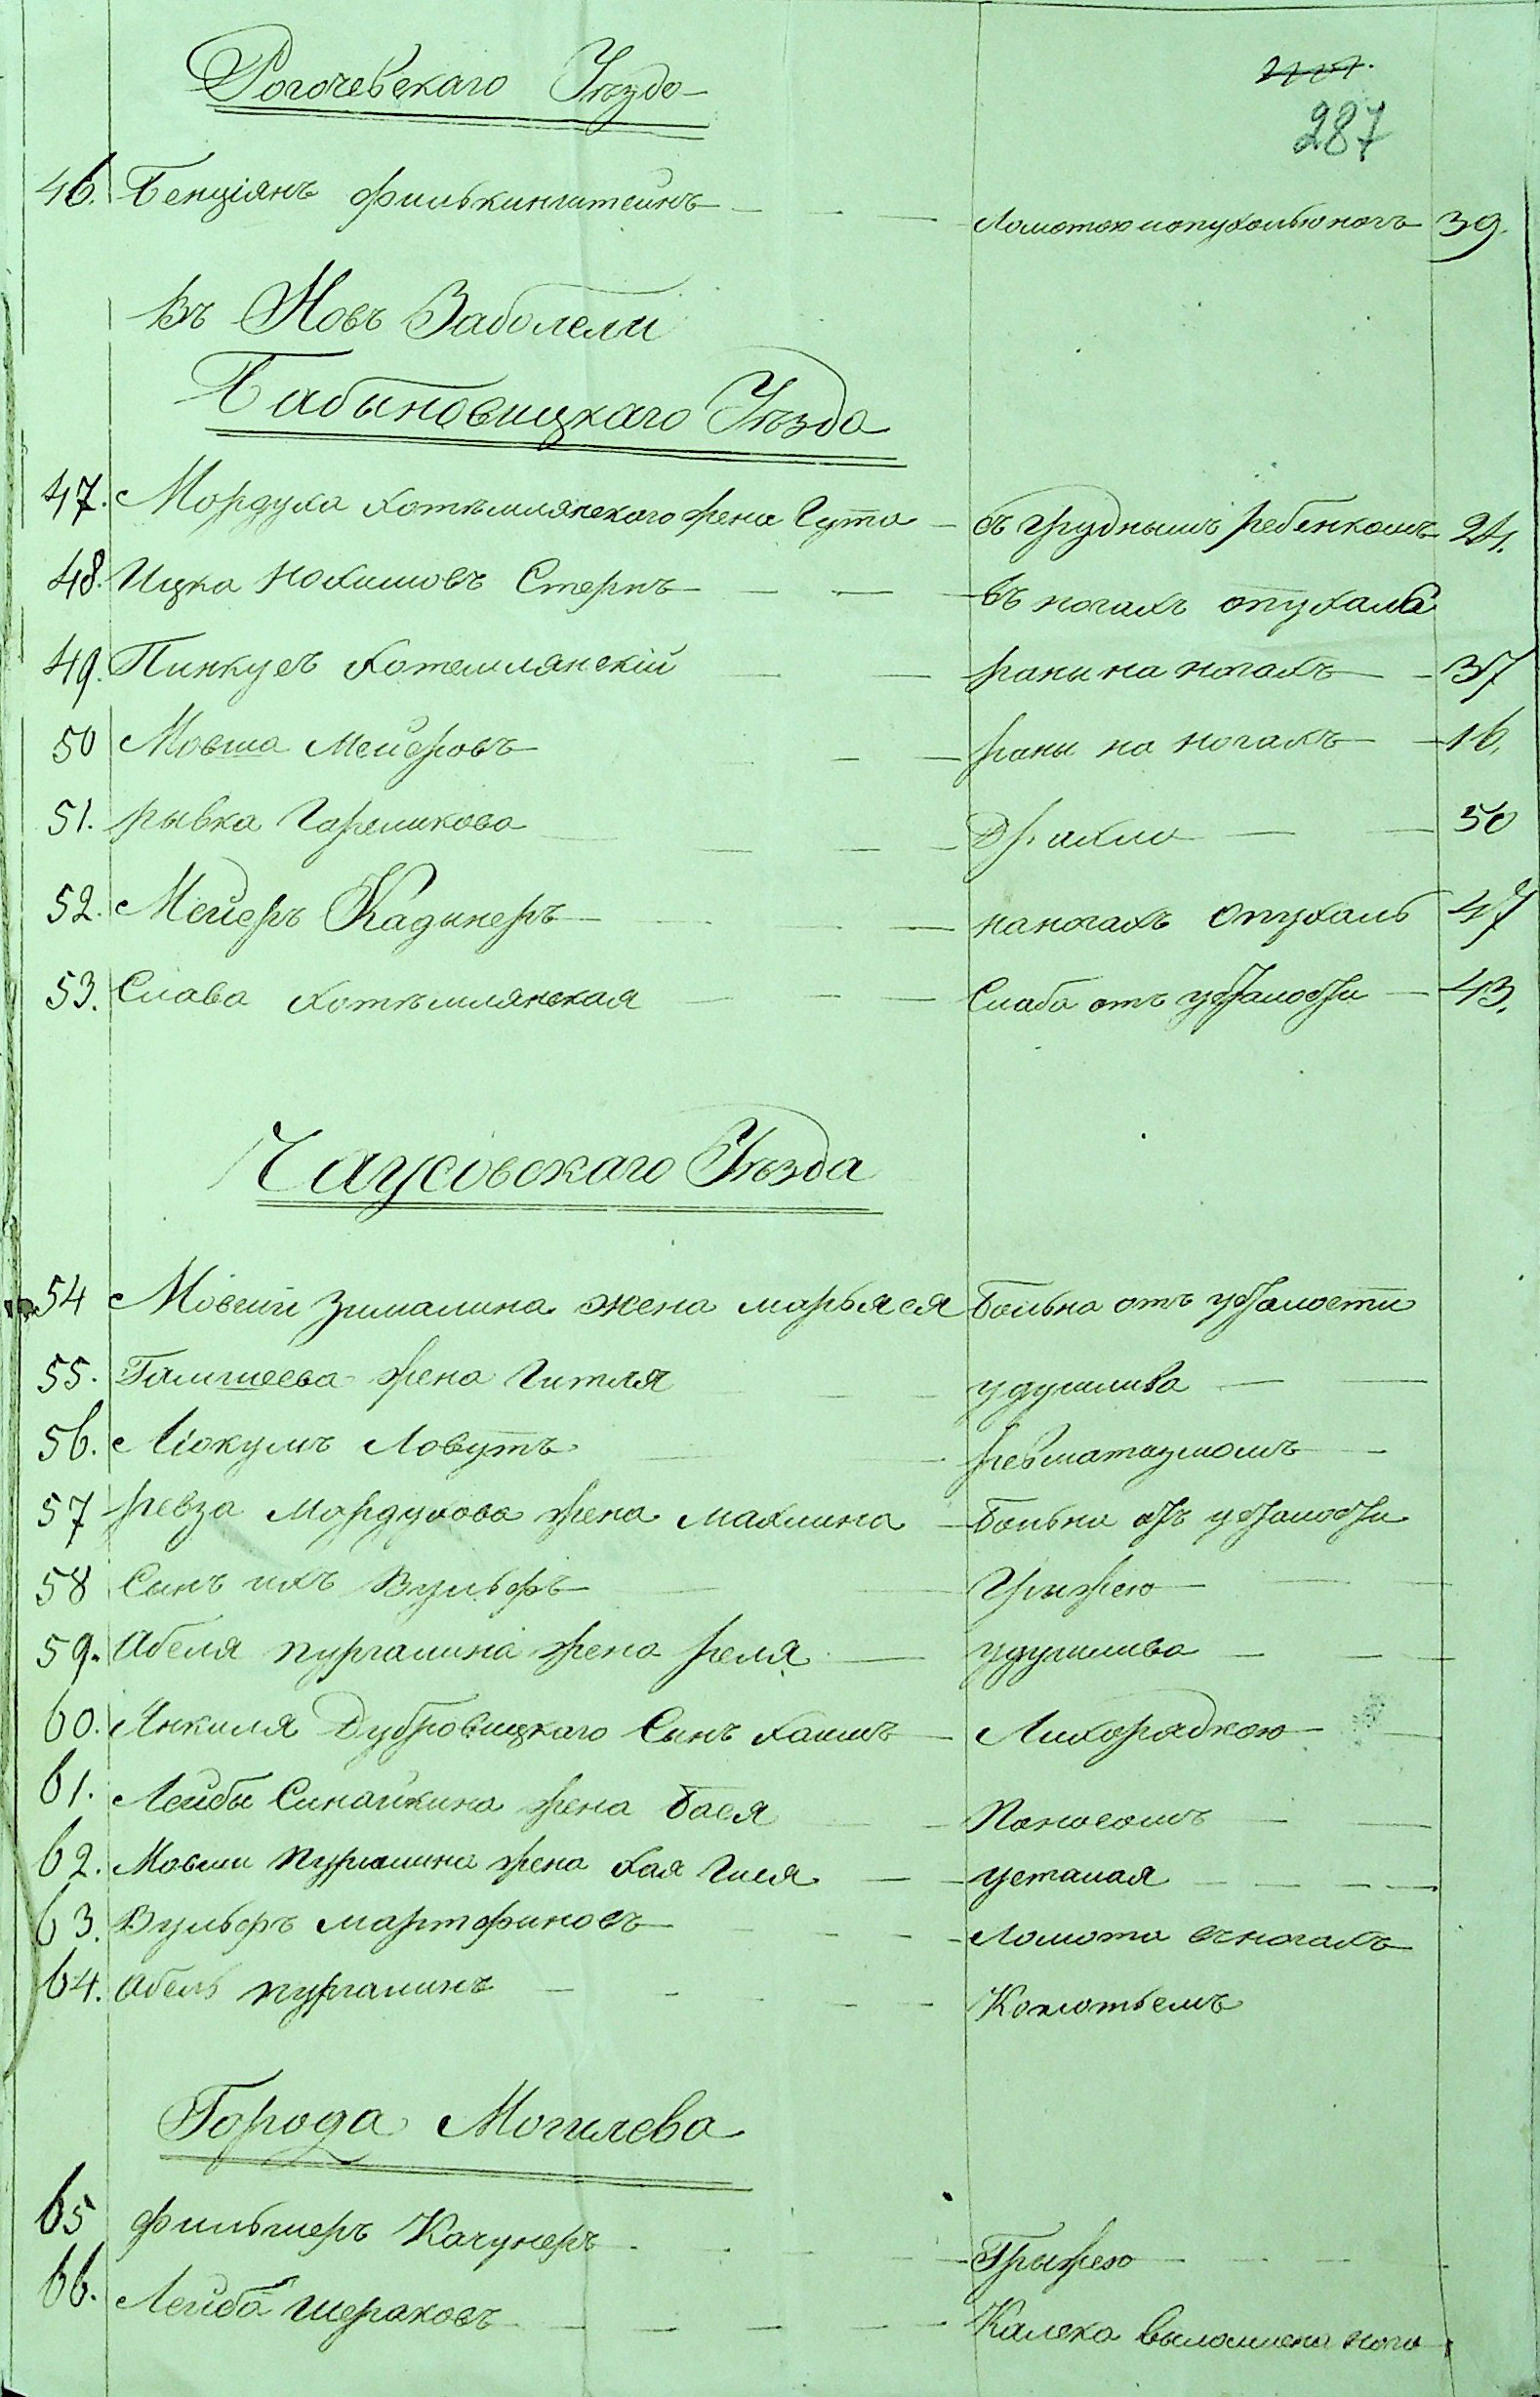 Рогачевскаго Уѣзда
287
46. Бенціянъ Филькинштейнъ - ломотою и опухолью ногъ 39.
Въ Новь Заболели
Бабыновицкаго Уѣзда
47. Мордуха Хотѣмлянскаго жена Гута - съ груднымъ ребенкомъ 24.
48. Ицка Нохимовъ Стернъ - въ ногахъ опухаль
49. Пинкусъ Хотемлянскій - раны на ногахъ - 37
50 Мовша Мейеровъ - раны на ногахъ - 16.
51. рывка Гореликова - Дряхла - 50
52. Мейеръ Кадынеръ - на ногахъ опухаль 47
53. Слава Хотѣмлянская - Слаба отъ усталости - 43.
Чаусовскаго Уѣзда
54 Мовши Зималина жена марьяся Больна отъ усталости
55. жена Гитля - удушлива
56. Іокумъ Ловутъ - ревматизмомъ
57 ревза Мордухова жена малкина - Больна отъ усталости
58 Сынъ ихъ Вульфъ - Грыжею
59. Абеля пургалина жена реля - удушлива
60. Янкиля Дубровицкаго Сынъ Хаимъ - Лихорадкою
61. Лейбы Синайкина жена Бася - Поносомъ
62. Мовши Пургалина жена Хая Гися - усталая
63. Вульфъ мартфиновъ - Ломота въ ногахъ
64. Абель пургалинъ - Колотьемъ
Города Могилева
65 Фильшеръ Качунеръ - Грыжею
66. Лейба шераковъ - Калека выломлена нога